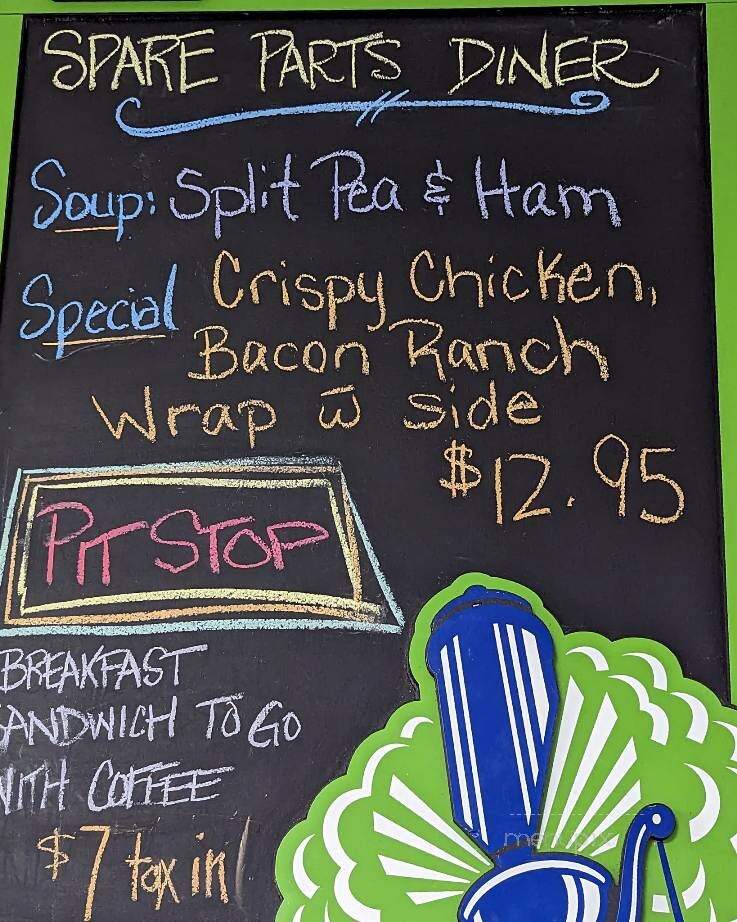 SPARE PARTS DINER
Soup: Split Pea & Ham
Special Crispy Chicken,
Bacon Ranch
Wrap w̄ side
$12.95
PIT STOP
BREAKFAST
SANDWICH TO GO
WITH COFFEE
$7 tax in